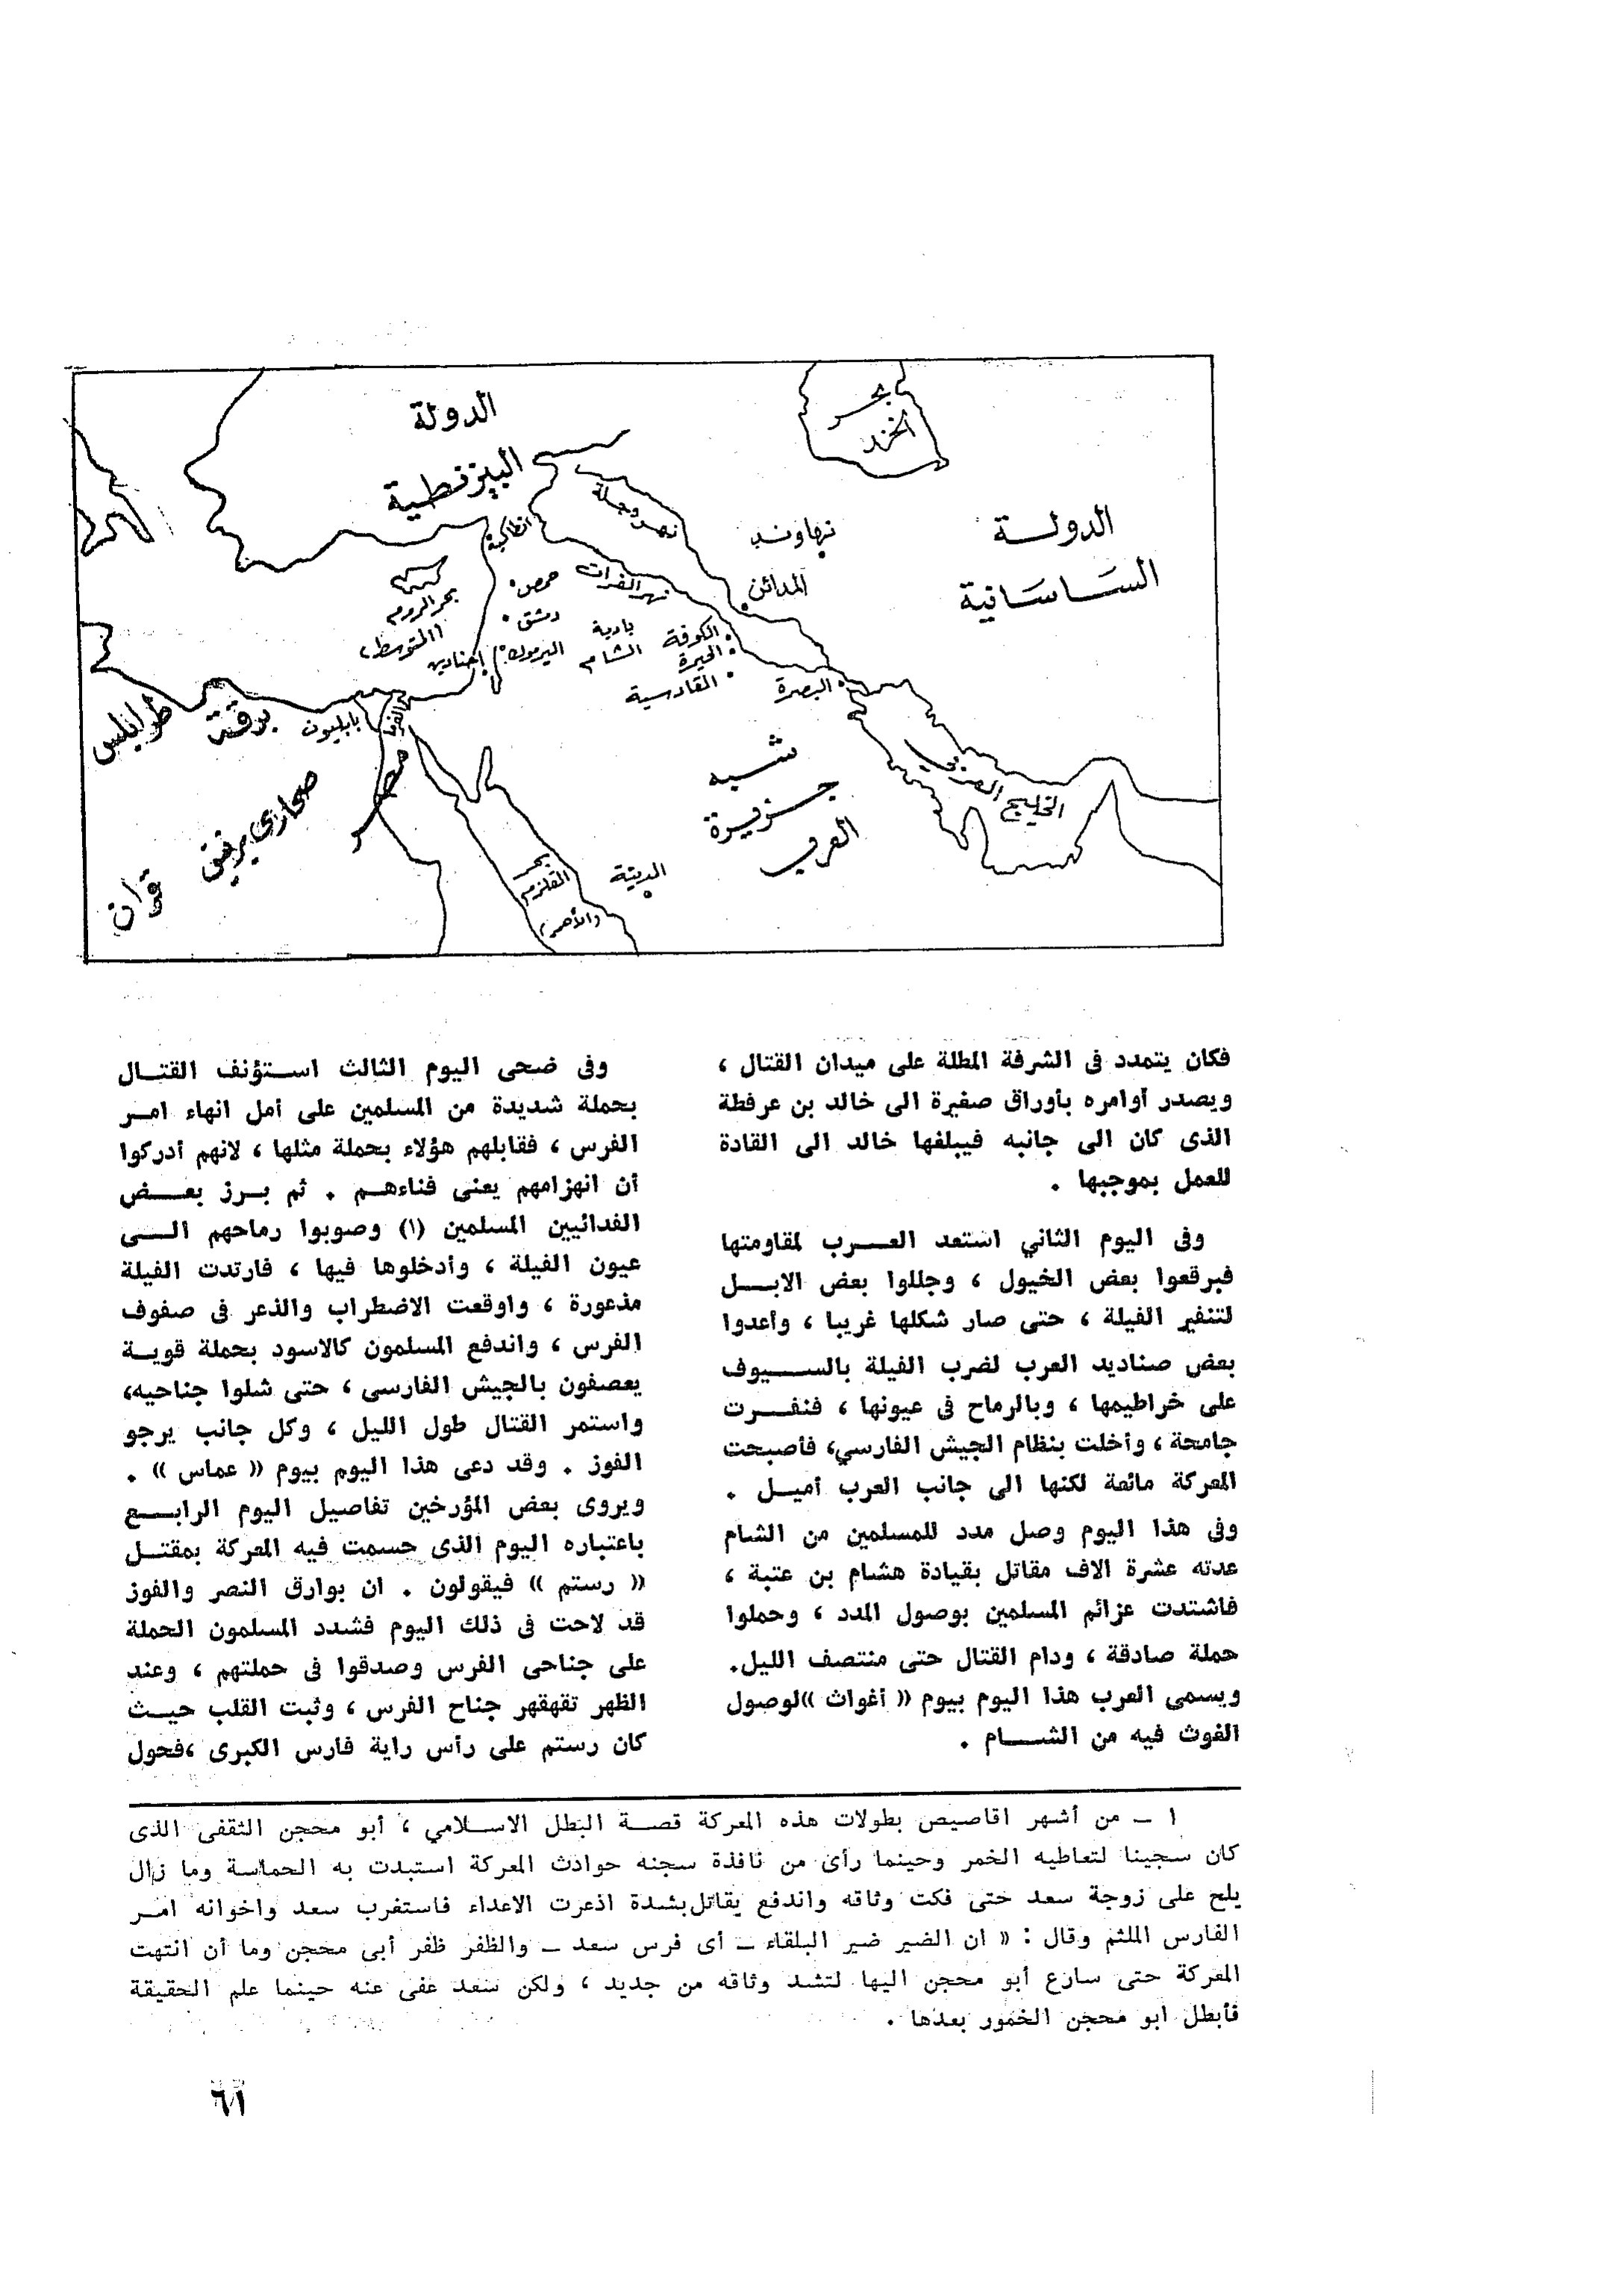 الدولة
البيزنطية
بحر
الخزر
الدولة
الساسانية
نهر دجلة
نهاوند
المدائن
انطاكية
نهر الفرات
حمص
دمشق
بحر الروم
(المتوسط)
اليرموك
اجنادين
بادية
الشام
الكوفة
الحيرة
القادسية
البصرة
طرابلس
برقة
بابليون
الفرما
مصر
صحاري برنيق
شبه
جزيرة
العرب
الخليج العربي
المدينة
بحر
القلزم
(الأحمر)
فكان يتمدد فى الشرفة المطلة على ميدان القتال ،
ويصدر أوامره بأوراق صغيرة الى خالد بن عرفطة
الذى كان الى جانبه فيبلغها خالد الى القادة
للعمل بموجبها .
وفى اليوم الثاني استعد العـــرب لمقاومتها
فبرقعوا بعض الخيول ، وجللوا بعض الابـــل
لتنفير الفيلة ، حتى صار شكلها غريبا ، وأعدوا
بعض صناديد العرب لضرب الفيلة بالســـيوف
على خراطيمها ، وبالرماح فى عيونها ، فنفـــرت
جامحة ، وأخلت بنظام الجيش الفارسي، فأصبحت
المعركة مائعة لكنها الى جانب العرب أميـــل .
وفى هذا اليوم وصل مدد للمسلمين من الشام
عدته عشرة الاف مقاتل بقيادة هشام بن عتبة ،
فاشتدت عزائم المسلمين بوصول المدد ، وحملوا
حملة صادقة ، ودام القتال حتى منتصف الليل.
ويسمى العرب هذا اليوم بيوم (( أغواث ))لوصول
الغوث فيه من الشـــام .
وفى ضحى اليوم الثالث اســتؤنف القتــال
بحملة شديدة من المسلمين على أمل انهاء امــر
الفرس ، فقابلهم هؤلاء بحملة مثلها ، لانهم أدركوا
أن انهزامهم يعنى فناءهــم . ثم بــرز بعـــض
الفدائيين المسلمين (١) وصوبوا رماحهم الـــى
عيون الفيلة ، وأدخلوها فيها ، فارتدت الفيلة
مذعورة ، واوقعت الاضطراب والذعر فى صفوف
الفرس ، واندفع المسلمون كالاسود بحملة قويــة
يعصفون بالجيش الفارسى ، حتى شلوا جناحيه،
واستمر القتال طول الليل ، وكل جانب يرجو
الفوز . وقد دعى هذا اليوم بيوم (( عماس )) .
ويروى بعض المؤرخين تفاصيل اليوم الرابـــع
باعتباره اليوم الذى حسمت فيه المعركة بمقتــل
(( رستم )) فيقولون . ان بوارق النصر والفوز
قد لاحت فى ذلك اليوم فشدد المسلمون الحملة
على جناحى الفرس وصدقوا فى حملتهم ، وعند
الظهر تقهقهر جناح الفرس ، وثبت القلب حيــث
كان رستم على رأس راية فارس الكبرى ،فحول
١ ـ من أشهر اقاصيص بطولات هذه المعركة قصــة البطل الاســلامي ، أبو محجن الثقفى الذى
كان سجينا لتعاطيه الخمر وحينما رأى من نافذة سجنه حوادث المعركة استبدت به الحماسة وما زال
يلح على زوجة سعد حتى فكت وثاقه واندفع يقاتل بشدة اذعرت الاعداء فاستغرب سعد واخوانه امــر
الفارس الملثم وقال : « ان الضبر ضبر البلقاء ـ أى فرس سعد ـ والظفر ظفر أبى محجن وما أن انتهت
المعركة حتى سارع أبو محجن اليها لتشد وثاقه من جديد ، ولكن سعد عفى عنه حينما علم الحقيقة
فأبطل ابو محجن الخمور بعدها .
٦١